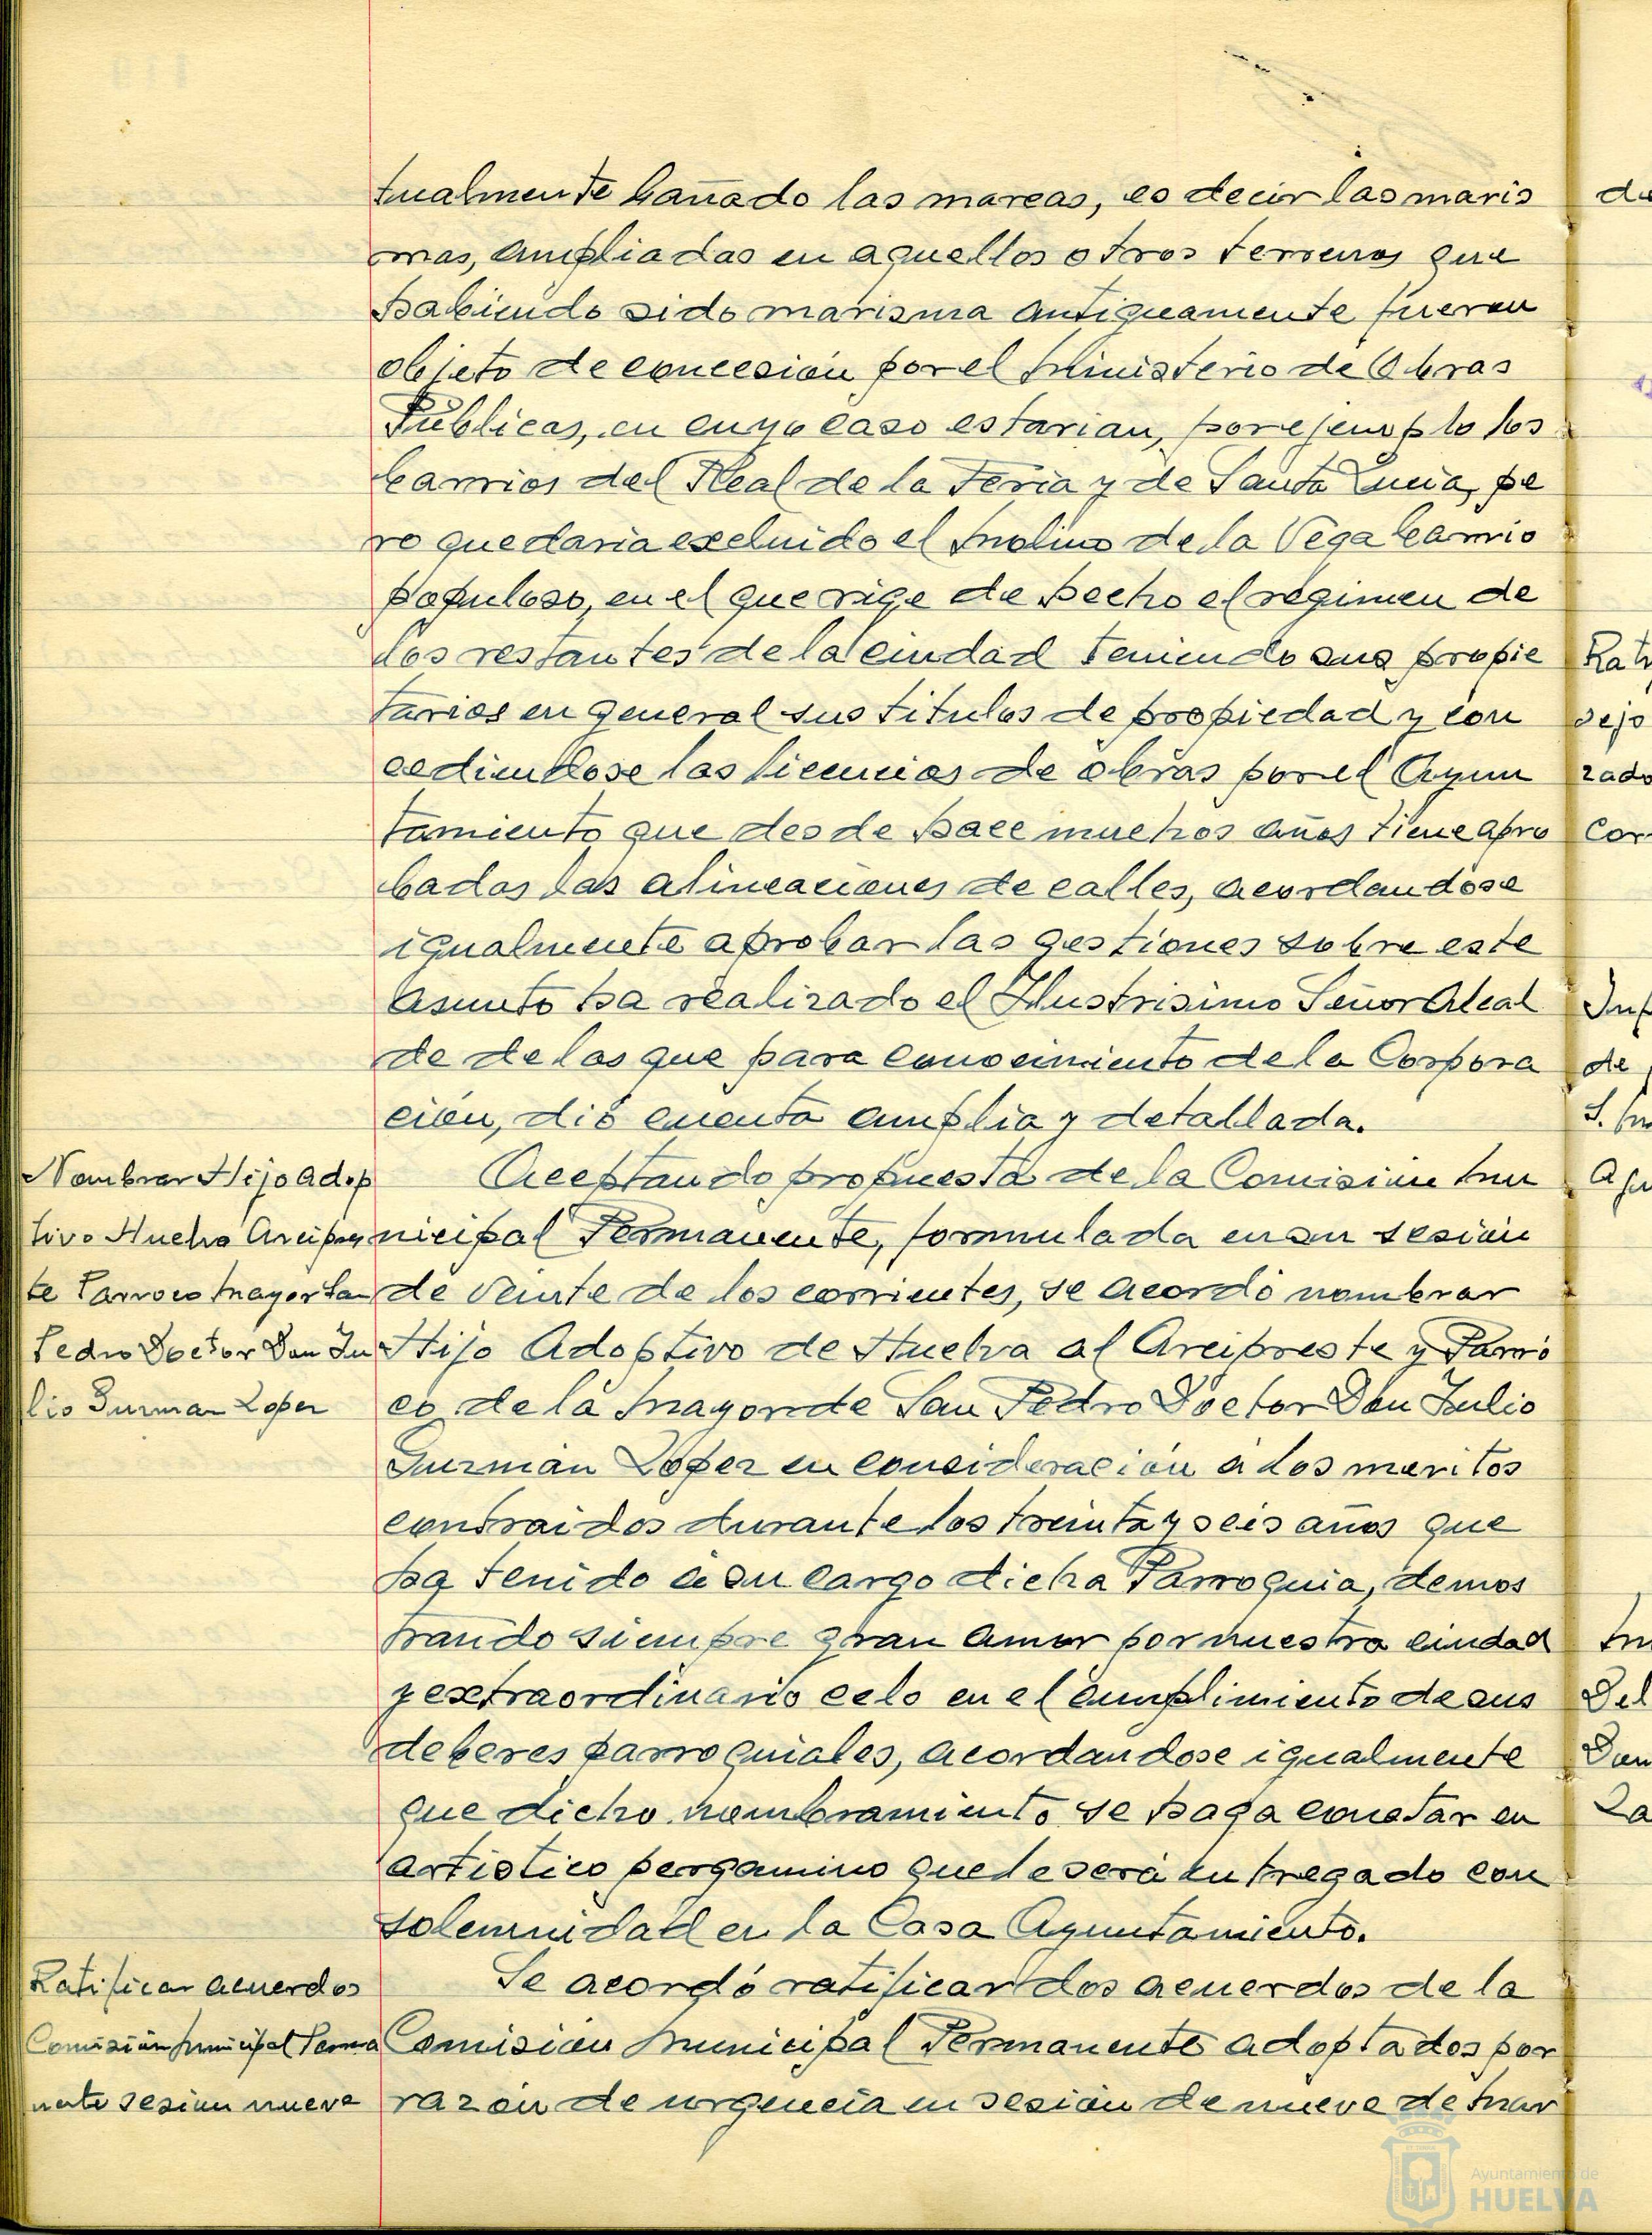 tualmente bañado las mareas, es decir las maris
mas, ampliadas en aquellos otros terrenos que
habiendo sido marisma antiguamente fueron
objeto de concesión por el Ministerio de Obras
Públicas, en cuyo caso estarian, por ejemplo los
barrios del Real de la Feria y de Santa Lucia, pe
ro quedaria excluido el Molino de la Vega barrio
populoso, en el que rige de hecho el régimen de
los restantes de la ciudad teniendo sus propie
tarios en general sus titulos de propiedad y con
cediendose las licencias de obras por el Ayun
tamiento que desde hace muchos años tiene apro
badas las alineaciones de calles, acordandose
igualmente aprobar las gestiones sobre este
asunto ha realizado el Ilustrisimo Señor Alcal
de de las que para conocimiento de la Corpora
ción, dió cuenta amplia y detallada.
Nombrar Hijo Adop
tivo Huelva Arcipres
te Parroco Mayor San
Pedro Doctor Don Ju
lio Guzman Lopez
Aceptando propuesta de la Comisión Mu
nicipal Permanente, formulada en su sesión
de veinte de los corrientes, se acordó nombrar
Hijo Adoptivo de Huelva al Arcipreste y Parró
co de la Mayor de San Pedro Doctor Don Julio
Guzmán López en consideración a los meritos
contraidos durante los treinta y seis años que
ha tenido a su cargo dicha Parroquia, demos
trando siempre gran amor por nuestra ciudad
y extraordinario celo en el cumplimiento de sus
deberes parroquiales, acordandose igualmente
que dicho nombramiento se haga constar en
artistico pergamino que le será entregado con
solemnidad en la Casa Ayuntamiento.
Ratificar acuerdos
Comisión Municipal Perma
nente sesion nueve
Se acordó ratificar los acuerdos de la
Comisión Municipal Permanente adoptados por
razón de urgencia en sesión de nueve de Mar
Ayuntamiento de
HUELVA